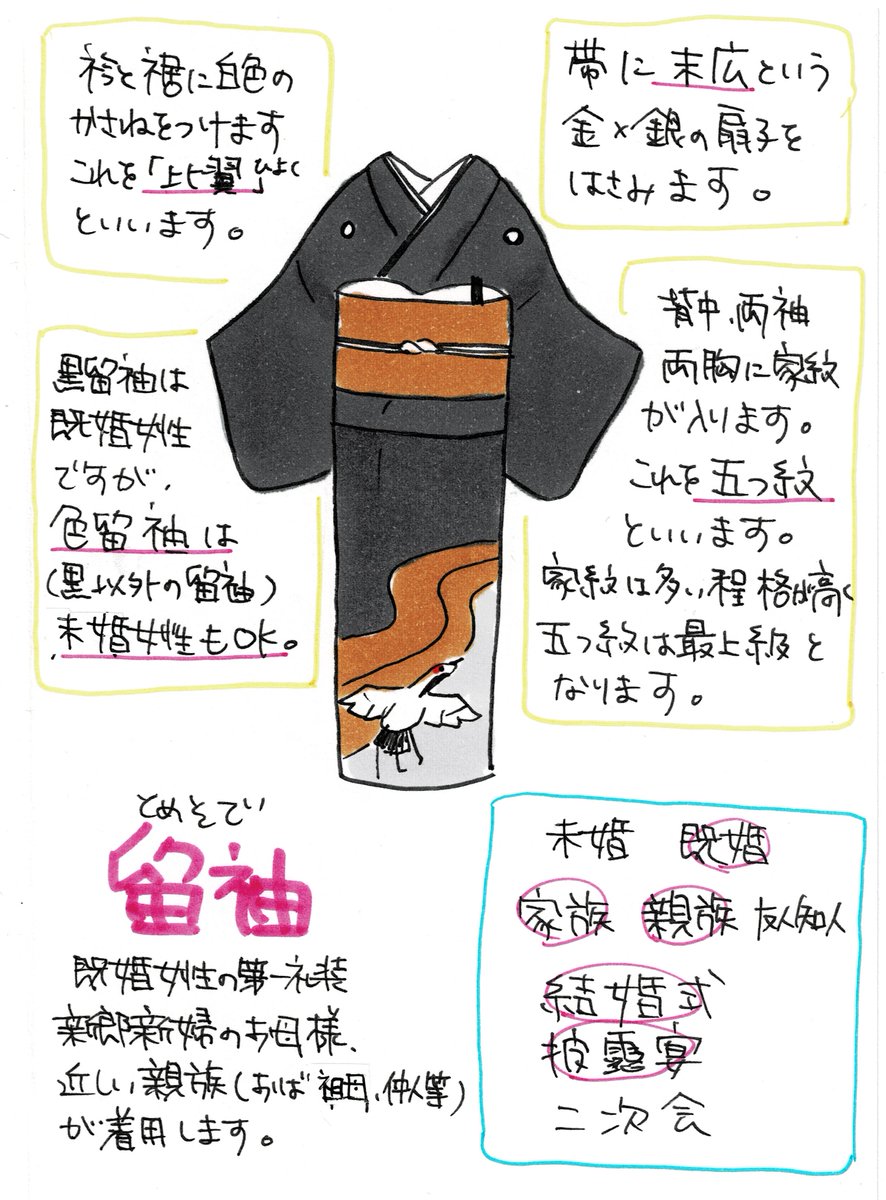 衿と裾に白色の
かさねをつけます
これを「上比翼」ひよく
といいます。
帯に末広という
金×銀の扇子を
はさみます。
黒留袖は
既婚女性
ですが、
色留袖は
(黒以外の留袖)
未婚女性もOK。
背中、両袖
両胸に家紋
が入ります。
これを五つ紋
といいます。
家紋は多い程格が高く
五つ紋は最上級と
なります。
とめそでい
留袖
既婚女性の第一礼装
新郎新婦のお母様、
近しい親族(おば 祖母、仲人等)
が着用します。
未婚 既婚
家族 親族 友人知人
結婚式
披露宴
二次会